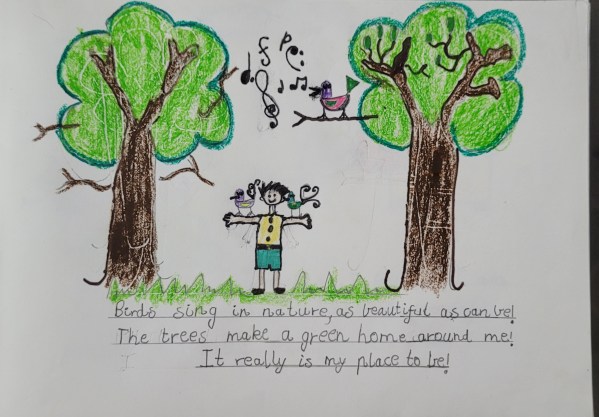 Birds sing in nature, as beautiful as can be!
The trees make a green home around me!
It really is my place to be!